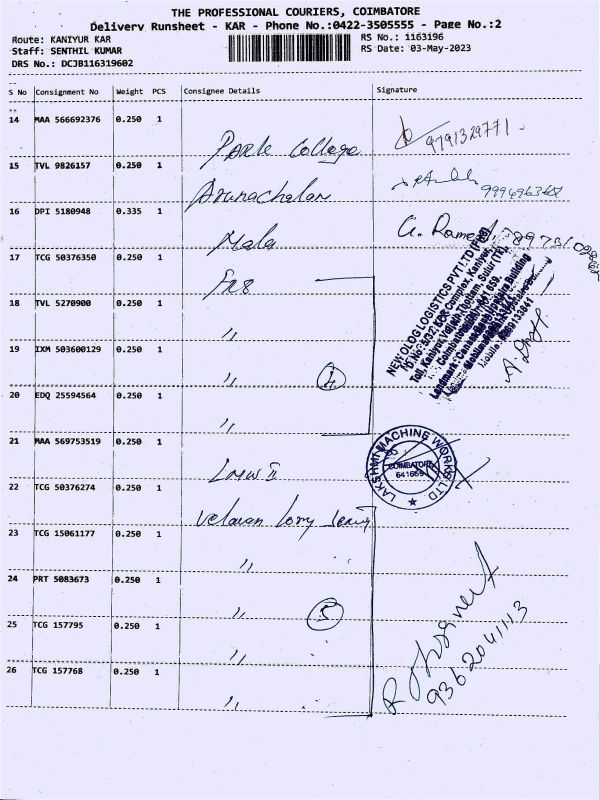 THE PROFESSIONAL COURIERS, COIMBATORE
Delivery Runsheet - KAR - Phone No.:0422-3505555 - Page No.:2
Route: KANIYUR KAR
RS No.: 1163196
Staff: SENTHIL KUMAR
RS Date: 03-May-2023
DRS No.: DCJB116319602
S No Consignment No Weight PCS Consignee Details Signature
14 MAA 566692376 0.250 1
Park College
9791329771
15 TVL 9826157 0.250 1
Arunachalam
16 DPI 5180948 0.335 1
Mala
17 TCG 50376350 0.250 1
18 TVL 5270900 0.250 1
"
19 IXM 503600129 0.250 1
" 4
20 EDQ 25594564 0.250 1
"
NEWOLOG LOGISTICS PVT LTD
21 MAA 569753519 0.250 1
LMW II
LAKSHMI MACHINE WORKS LTD.
COIMBATORE
641659
22 TCG 50376274 0.250 1
Velavan Lorry
23 TCG 15061177 0.250 1
"
24 PRT 5083673 0.250 1
" 5
25 TCG 157795 0.250 1
"
26 TCG 157768 0.250 1
"
9362041113